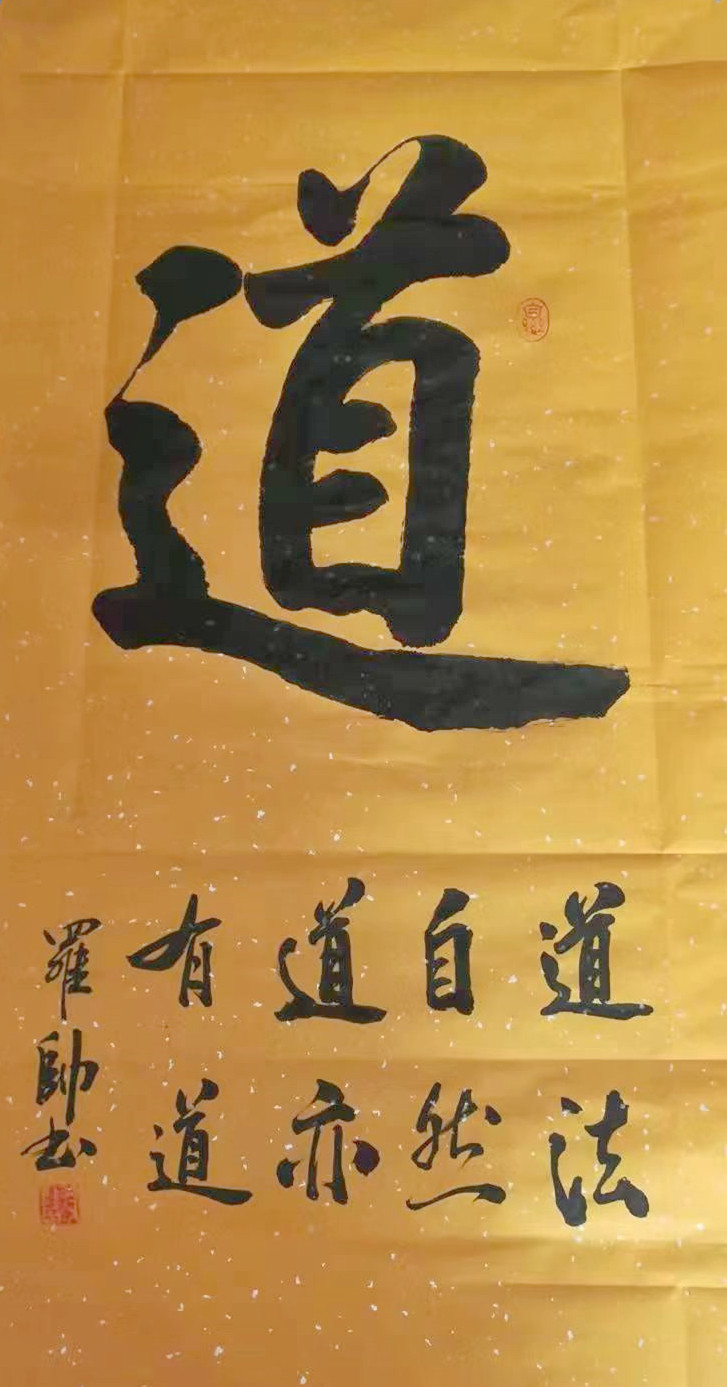 道
道法
自然
道亦
有道
羅帥书